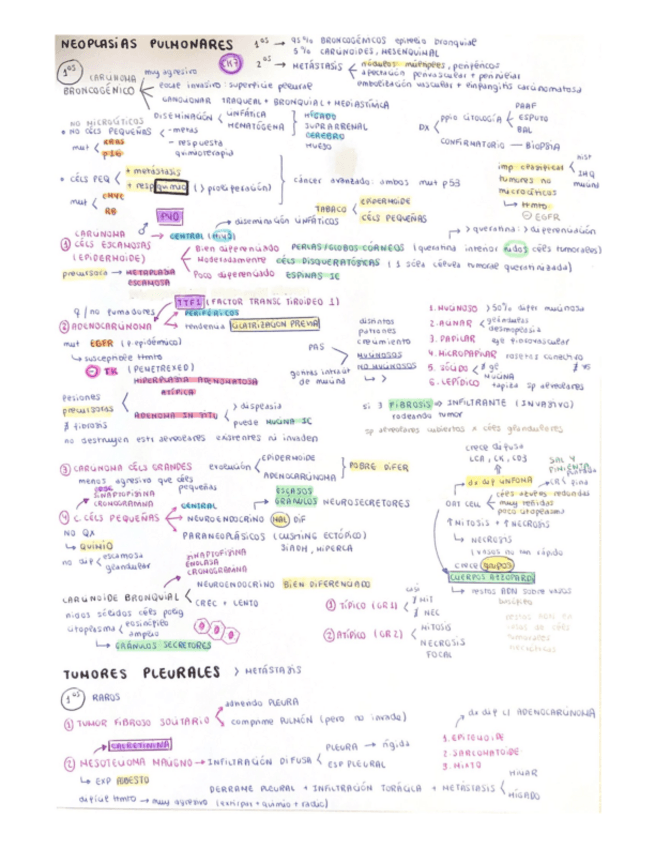 NEOPLASIAS PULMONARES
1ᵒˢ → 95% BRONCOGÉNICOS epitelio bronquial
5% CARCINOIDES, MESENQUIMAL
CK7
2ᵒˢ → METÁSTASIS < nódulos múltiples, periféricos
afectación perivascular + perineural
embolización vascular + linfangitis carcinomatosa
1ᵒˢ CARCINOMA BRONCOGÉNICO
muy agresivo
invasivo: superficie pleural
GANGLIONAR TRAQUEAL + BRONQUIAL + MEDIASTÍNICA
DISEMINACIÓN < LINFÁTICA
HEMATÓGENA
HÍGADO
SUPRARRENAL
CEREBRO
HUESO
NO MICROCÍTICOS
• NO CÉLS PEQUEÑAS < - metas
- respuesta quimioterapia
mut < KRAS
p16
DX < ppio CITOLOGÍA < PAAF
ESPUTO
BAL
CONFIRMATORIO — BIOPSIA
• CÉLS PEQ < + metástasis
+ resp quimio (> proliferación)
mut < CMYC
RB
cáncer avanzado: ambos mut p53
TABACO < EPIDERMOIDE
CÉLS PEQUEÑAS
imp clasificar tumores no microcíticos
HIST
IHQ
↳ Httmto:
⊖ EGFR
P40
diseminación LINFÁTICOS
CARCINOMA ① CÉLS ESCAMOSAS (EPIDERMOIDE)
♂ → CENTRAL (HILIO)
> queratina: > diferenciación
Bien diferenciado PERLAS/GLOBOS CÓRNEOS (queratina interior nidos céls tumorales)
Moderadamente CÉLS DISQUERATÓSICAS
Poco diferenciado ESPINAS IC
precursora → METAPLASIA ESCAMOSA
TTF1 (FACTOR TRANSC TIROIDEO 1)
♀ / no fumadores
② ADENOCARCINOMA
PERIFÉRICOS
tendencia CICATRIZACIÓN PREVIA
mut EGFR
↳ susceptible ttmto
⊖ TK (PEMETREXED)
PAS
distintos patrones crecimiento
MUCINOSOS
NO MUCINOSOS
1. MUCINOSO > 50% difer mucinosa
2. ACINAR < glándulas
desmoplasia
3. PAPILAR eje fibrovascular
4. MICROPAPILAR rosetas
5. SÓLIDO
MUCINA
6. LEPÍDICO tapiza sp alveolares
lesiones precursoras
HIPERPLASIA ADENOMATOSA ATÍPICA
ADENOCA IN SITU < > displasia
puede MUCINA IC
∄ fibrosis
no destruyen estr alveolares existentes ni invaden
si ∃ FIBROSIS → INFILTRANTE (INVASIVO)
rodeando tumor
sp alveolares cubiertos x céls glandulares
③ CARCINOMA CÉLS GRANDES
menos agresivo que céls pequeñas
evolución < EPIDERMOIDE
ADENOCARCINOMA
POBRE DIFER
crece difuso
LCA, CK, CD3
dx dif LINFOMA
SAL Y PIMIENTA
OAT CELL
céls redondas
muy teñidas
poco citoplasma
↑ MITOSIS + ↑ NECROSIS
↳ NECROSIS
crece grupos
CUERPOS AZZOPARDI
↳ restos ADN sobre vasos
SINAPTOFISINA
CROMOGRANINA
④ C. CÉLS PEQUEÑAS
NO QX
↳ QUIMIO
no dif < escamosa
glandular
CENTRAL
ESCASOS GRÁNULOS NEUROSECRETORES
NEUROENDOCRINO MAL DIF
PARANEOPLÁSICOS (CUSHING ECTÓPICO)
SIADH, HIPERCA
SINAPTOFISINA
ENOLASA
CROMOGRANINA
CARCINOIDE BRONQUIAL
NEUROENDOCRINO BIEN DIFERENCIADO
CREC + LENTO
nidos sólidos céls polig
citoplasma < eosinófilo
amplio
↳ GRÁNULOS SECRETORES
① TÍPICO (GR1) < ∄ MIT
∄ NEC
② ATÍPICO (GR2) < MITOSIS
NECROSIS FOCAL
TUMORES PLEURALES > METÁSTASIS
1ᵒˢ RAROS
① TUMOR FIBROSO SOLITARIO < PLEURA
comprime PULMÓN (pero no invade)
CALRETININA
② MESOTELIOMA MALIGNO → INFILTRACIÓN DIFUSA < PLEURA → rígida
ESP PLEURAL
dx dif c/ ADENOCARCINOMA
1. EPITELIOIDE
2. SARCOMATOIDE
3. MIXTO
↳ EXP ASBESTO
DERRAME PLEURAL + INFILTRACIÓN TORÁCICA + METÁSTASIS < HILIAR
HÍGADO
difícil ttmto → muy agresivo (extirpar + quimio + radio)